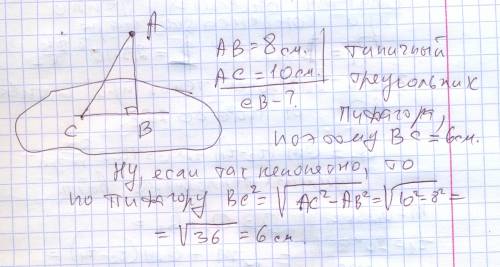 A
C B
AB = 8 см.
AC = 10 см.
СВ - ?
типичный
треугольник
Пифагора,
поэтому ВС = 6 см.
Ну, если так непонятно, то
по Пифагору BC² = √AC² - AB² = √10² - 8² =
= √36 = 6 см